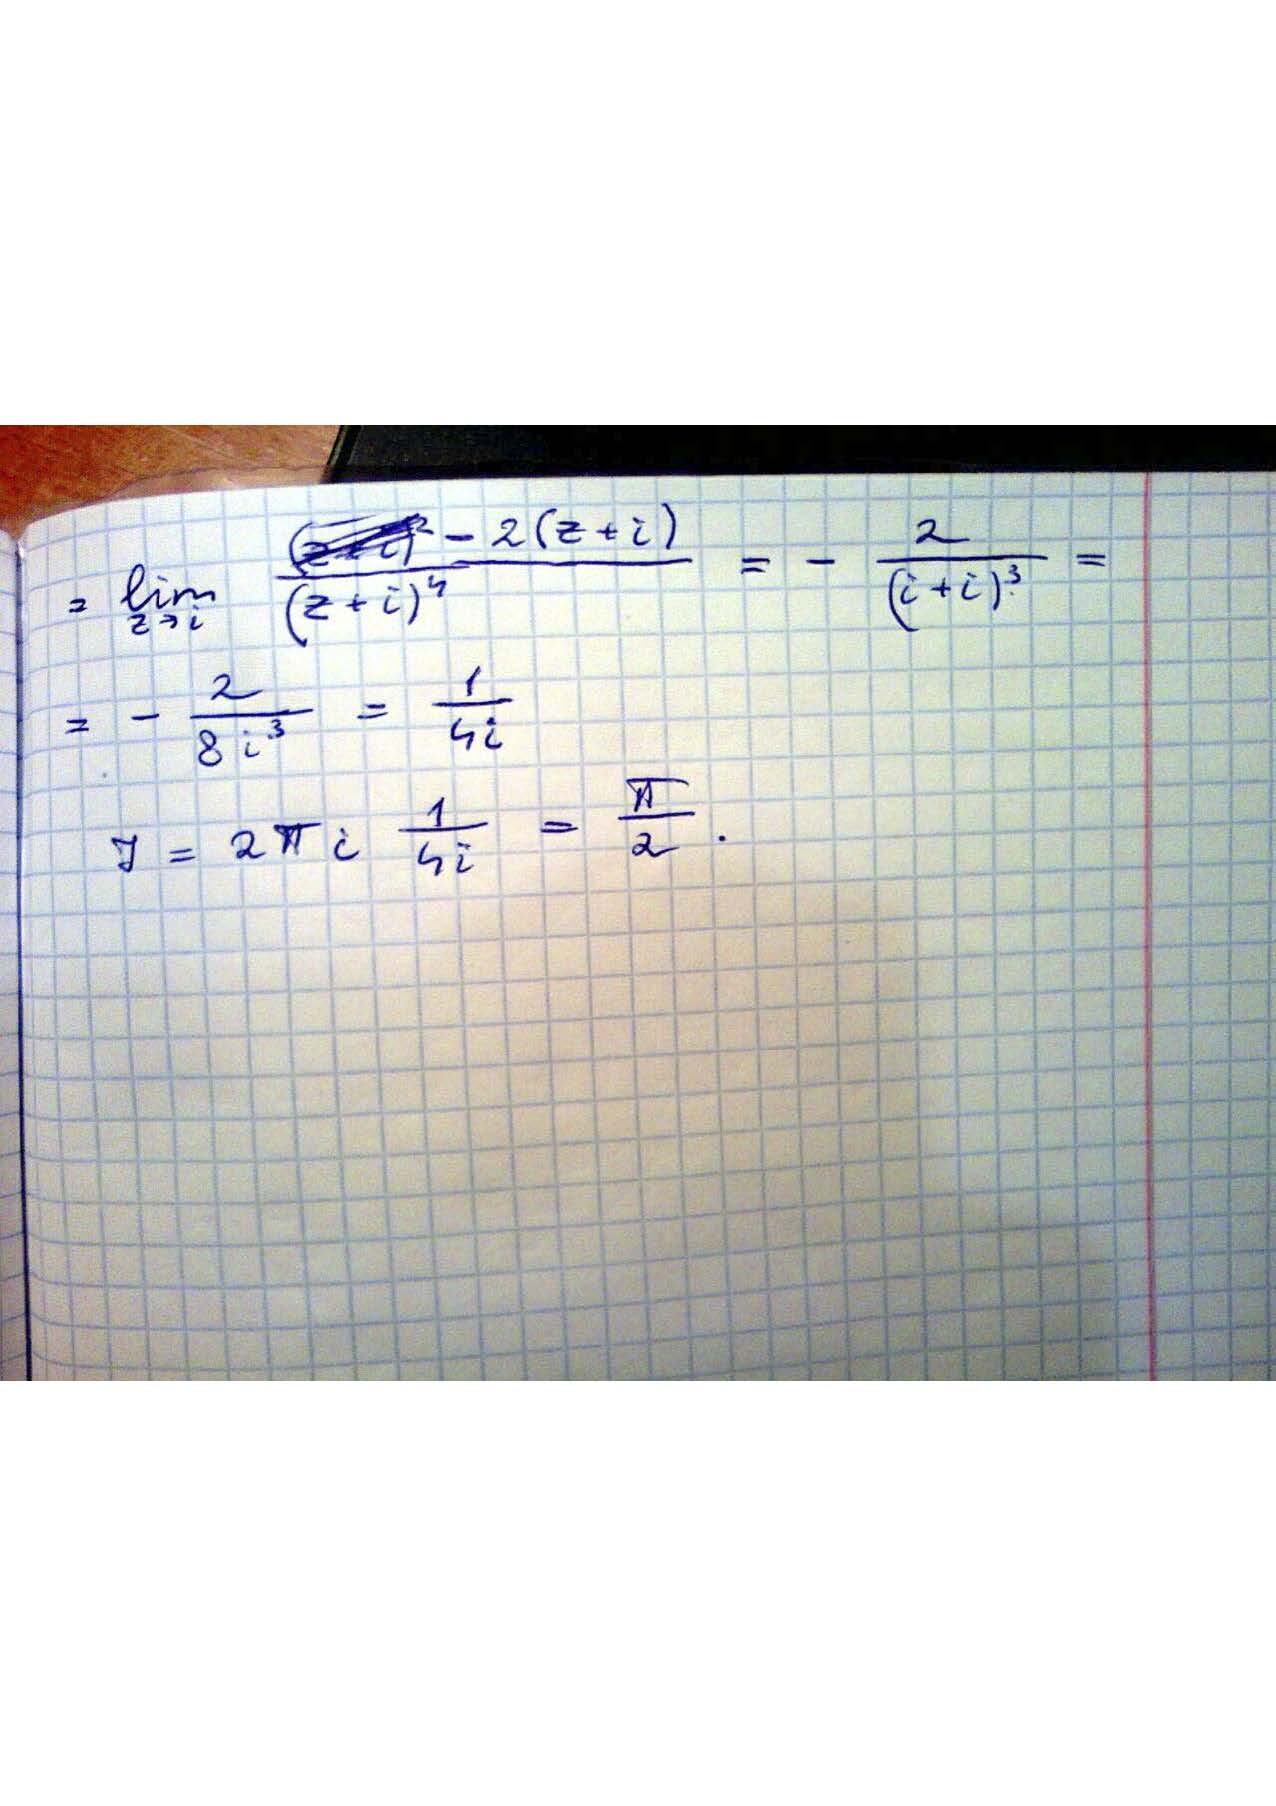 = lim z→i -2(z+i) / (z+i)⁴ = - 2 / (i+i)³ =
= - 2 / 8i³ = 1 / 4i
J = 2πi 1 / 4i = π / 2.